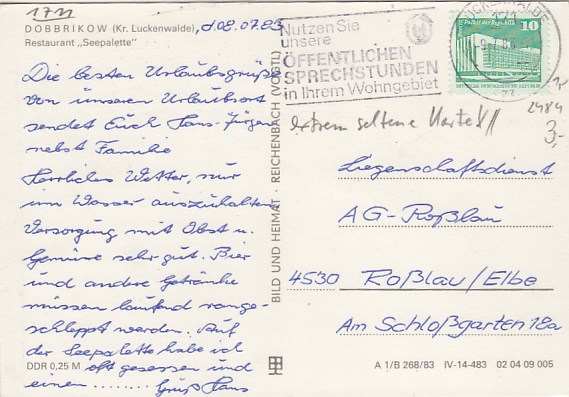 1711
DOBBRIKOW (Kr. Luckenwalde), d. 08.07.83
Restaurant „Seepalette"
Die besten Urlaubsgrüße
von unserem Urlaubsort
sendet Euch Hans-Jürgen
nebst Familie
Herrliches Wetter, nur
im Wasser auszuhalten
Versorgung mit Obst u.
Gemüse sehr gut. Bier
und andere Getränke
müssen laufend range-
schleppt werden. Auf
der Seepalette habe ich
oft gesessen und
einen ........ Gruß Hans
DDR 0,25 M
BILD UND HEIMAT · REICHENBACH (VOGTL)
Nutzen Sie
unsere
ÖFFENTLICHEN
SPRECHSTUNDEN
in Ihrem Wohngebiet
LUCKENWALDE
171
10
DEUTSCHE DEMOKRATISCHE REPUBLIK
2484
3,-
extrem seltene Karte!!
Liegenschaftsdienst
AG-Roßlau
4530 Roßlau/Elbe
Am Schloßgarten 18a
A 1/B 268/83 IV-14-483 02 04 09 005